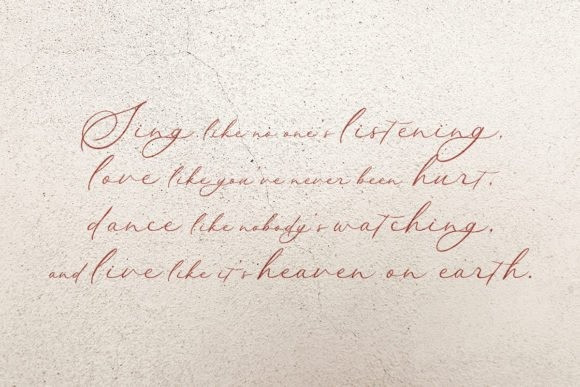 Sing like no one's listening,
love like you've never been hurt,
dance like nobody's watching,
and live like it's heaven on earth.